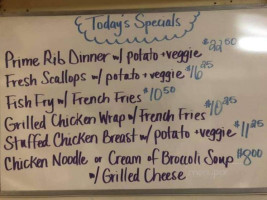 Todays Specials
Prime Rib Dinner w/ potato + veggie $22.00
Fresh Scallops w/ potato + veggie $16.25
Fish Fry w/ French Fries $10.50
Grilled Chicken Wrap w/ French Fries $10.25
Stuffed Chicken Breast w/ potato + veggie $11.25
Chicken Noodle or Cream of Broccoli Soup $8.00
w/ Grilled Cheese